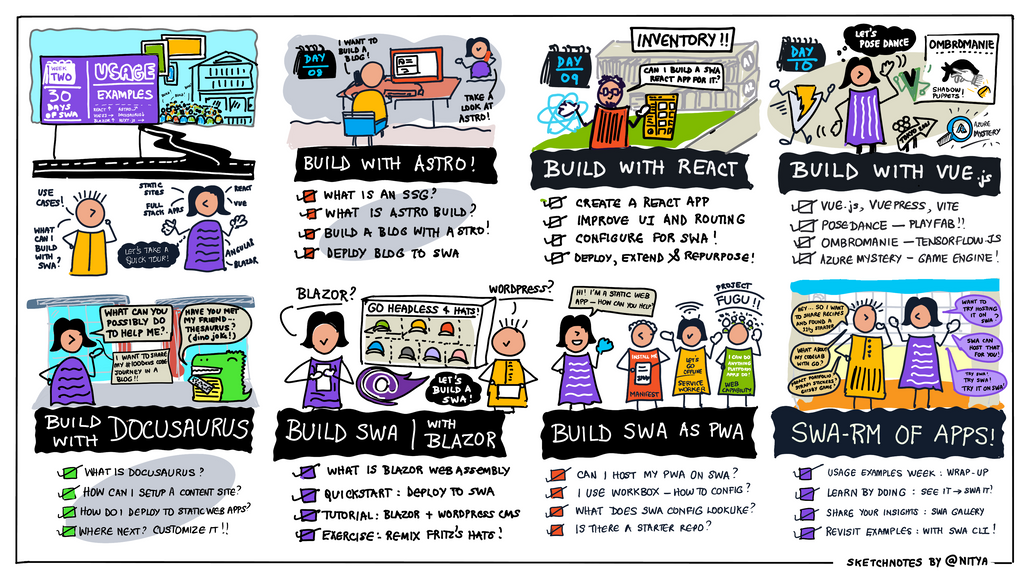 WEEK
TWO
30
DAYS
OF SWA
USAGE
EXAMPLES
REACT
ASTRO
VUEJS
DOCUSAURUS
BLAZOR
USE
CASES!
WHAT
CAN I
BUILD
WITH
SWA?
STATIC
SITES
FULL
STACK APPS
REACT
VUE
ANGULAR
BLAZOR
LET'S TAKE A
QUICK TOUR!
DAY
08
I WANT TO
BUILD A
BLOG!
TAKE A
LOOK AT
ASTRO!
BUILD WITH ASTRO!
WHAT IS AN SSG?
WHAT IS ASTRO BUILD?
BUILD A BLOG WITH ASTRO!
DEPLOY BLOG TO SWA
DAY
09
INVENTORY!!
CAN I BUILD A SWA
REACT APP FOR IT?
A1
A2
BUILD WITH REACT
CREATE A REACT APP
IMPROVE UI AND ROUTING
CONFIGURE FOR SWA!
DEPLOY, EXTEND & REPURPOSE!
DAY
10
LET'S
POSE DANCE
OMBROMANIE
SHADOW
PUPPETS!
AZURE
MYSTERY
BUILD WITH VUE.js
VUE.js, VUEPRESS, VITE
POSEDANCE — PLAYFAB!!
OMBROMANIE — TENSORFLOW.JS
AZURE MYSTERY - GAME ENGINE!
WHAT CAN YOU
POSSIBLY DO
TO HELP ME?
HAVE YOU MET
MY FRIEND...
THESAURUS?
(dino joke!)
I WANT TO SHARE
MY #100DAYS
JOURNEY IN A
BLOG!!
BUILD
WITH DOCUSAURUS
WHAT IS DOCUSAURUS?
HOW CAN I SETUP A CONTENT SITE?
HOW DO I DEPLOY TO STATIC WEB APPS?
WHERE NEXT? CUSTOMIZE IT!!
BLAZOR?
WORDPRESS?
GO HEADLESS 4 HATS!
LET'S
BUILD A
SWA!
BUILD SWA | WITH
BLAZOR
WHAT IS BLAZOR WEB ASSEMBLY
QUICKSTART: DEPLOY TO SWA
TUTORIAL: BLAZOR + WORDPRESS CMS
EXERCISE: REMIX FRITZ'S HATS!
HI! I'M A STATIC WEB
APP — HOW CAN YOU HELP?
PROJECT
FUGU!!
INSTALL ME
MANIFEST
LET'S
GO
OFFLINE
SERVICE
WORKER
I CAN DO
ANYTHING
PLATFORM
APPS DO!
WEB
CAPABILITY
BUILD SWA AS PWA
CAN I HOST MY PWA ON SWA?
I USE WORKBOX — HOW TO CONFIG?
WHAT DOES SWA CONFIG LOOKLIKE?
IS THERE A STARTER REPO?
HEY... SO I WANT
TO SHARE RECIPES
AND FOUND A
WHAT ABOUT
MY CODELAB
WITH GO?
WANT TO
TRY HOSTING
IT ON
SWA?
SWA CAN
HOST THAT
FOR YOU!
TRY SWA!
TRY SWA!
TRY IT ON SWA!
SWA-RM OF APPS!
USAGE EXAMPLES WEEK: WRAP-UP
LEARN BY DOING: SEE IT → SWA IT!
SHARE YOUR INSIGHTS: SWA GALLERY
REVISIT EXAMPLES: WITH SWA CLI!
SKETCHNOTES BY @NITYA